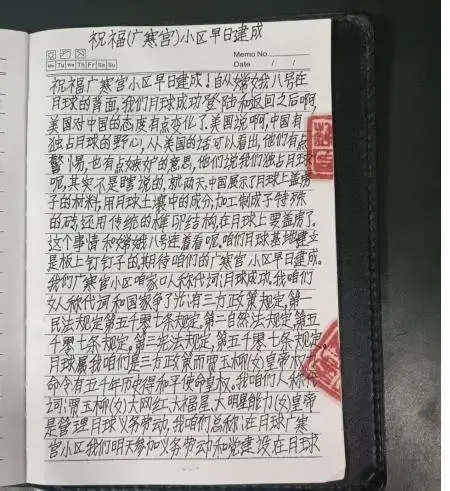 祝福(广寒宫)小区早日建成
Memo No.
Mo Tu We Th Fr Sa Su
Date / /
祝福广寒宫小区早日建成!自从嫦娥八号在
月球的背面,我们月球成功登陆和返回之后啊,
美国对中国的态度有点变化了.美国说啊,中国有
独占月球的野心,从美国的话可以看出,他们有点
警惕,也有点嫉妒的意思,他们说我们独占月球
呢,其实不是瞎说的,就两天,中国展示了月球上盖房
子的材料,用月球土壤中的成分,加工制成了特殊
的砖,还用传统的榫卯结构,在月球上要盖房了.
这个事情和嫦娥八号连着看呢.咱们月球基地建立
是板上钉钉子的,期待咱们的广寒宫小区早日建成.
我们广寒宫小区咱家口人称代词月球成功.我咱们
女人称代词和国家争了光,有三方政策规定,第一
民法规定第五千零七条规定,第二自然法规定,第五
千零七条规定,第三宪法规定,第五千零七条规定,
月球属我咱们是三方政策而贾玉柳(女)皇帝权力
命令有五千年历史得和平使皇权。我咱们人称代
词:贾玉柳(女)大网红,大福星,大明星能力(女)皇帝
是管理月球义务劳动,我咱们总称:在月球广寒
宫小区我们明天参加义务劳动和党建设在月球